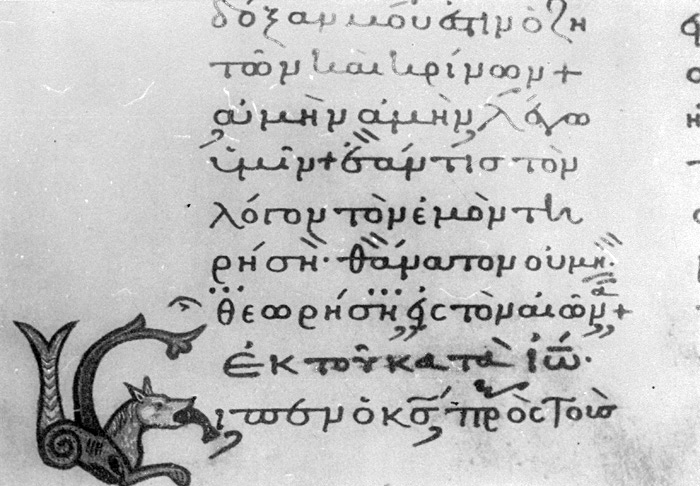 δόξαν μου ἔστιν ὁ ζη
τῶν καὶ κρίνων +
ἀμὴν ἀμὴν λέγω
ὑμῖν + ἐάν τις τὸν
λόγον τὸν ἐμὸν τη
ρήσῃ· θάνατον οὐ μὴ·
θεωρήσῃ εἰς τὸν αἰῶνα +
ἐκ τοῦ κατὰ ἰω·
Εἶπεν ὁ κς πρὸς τοὺς